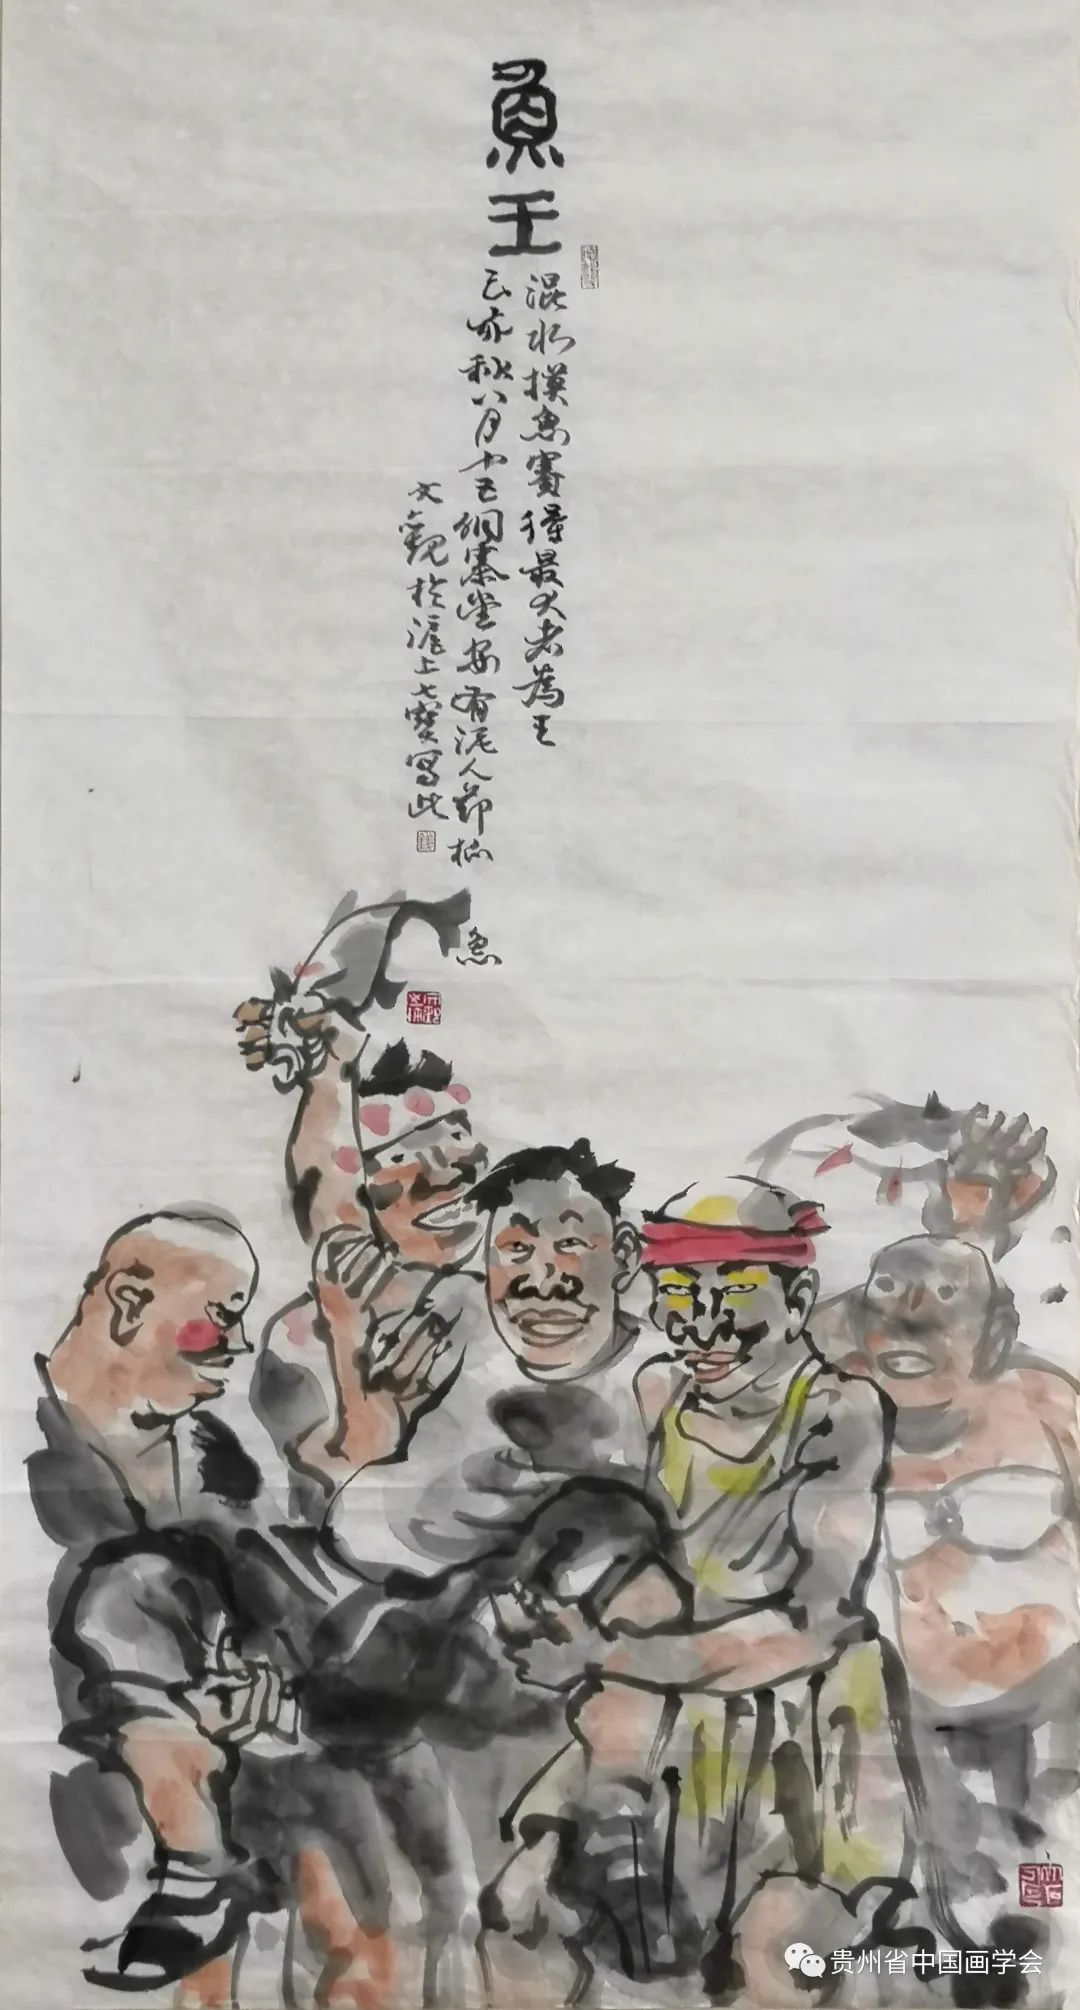 魚王
混水摸魚賽得最大者為王
己亥秋八月十五侗寨堂安有泥人節極
魚
文觀於滬上七寶寫此
贵州省中国画学会